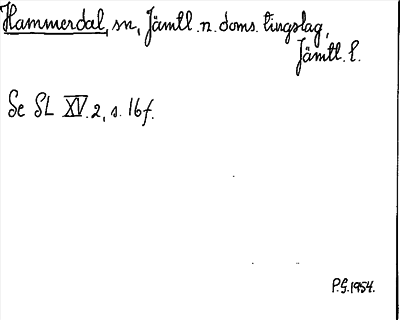 Hammerdal, sn, Jämtl. n. doms. tingslag,
Jämtl. l.
Se SL XV. 2, s. 16 f.
P.G. 1954.